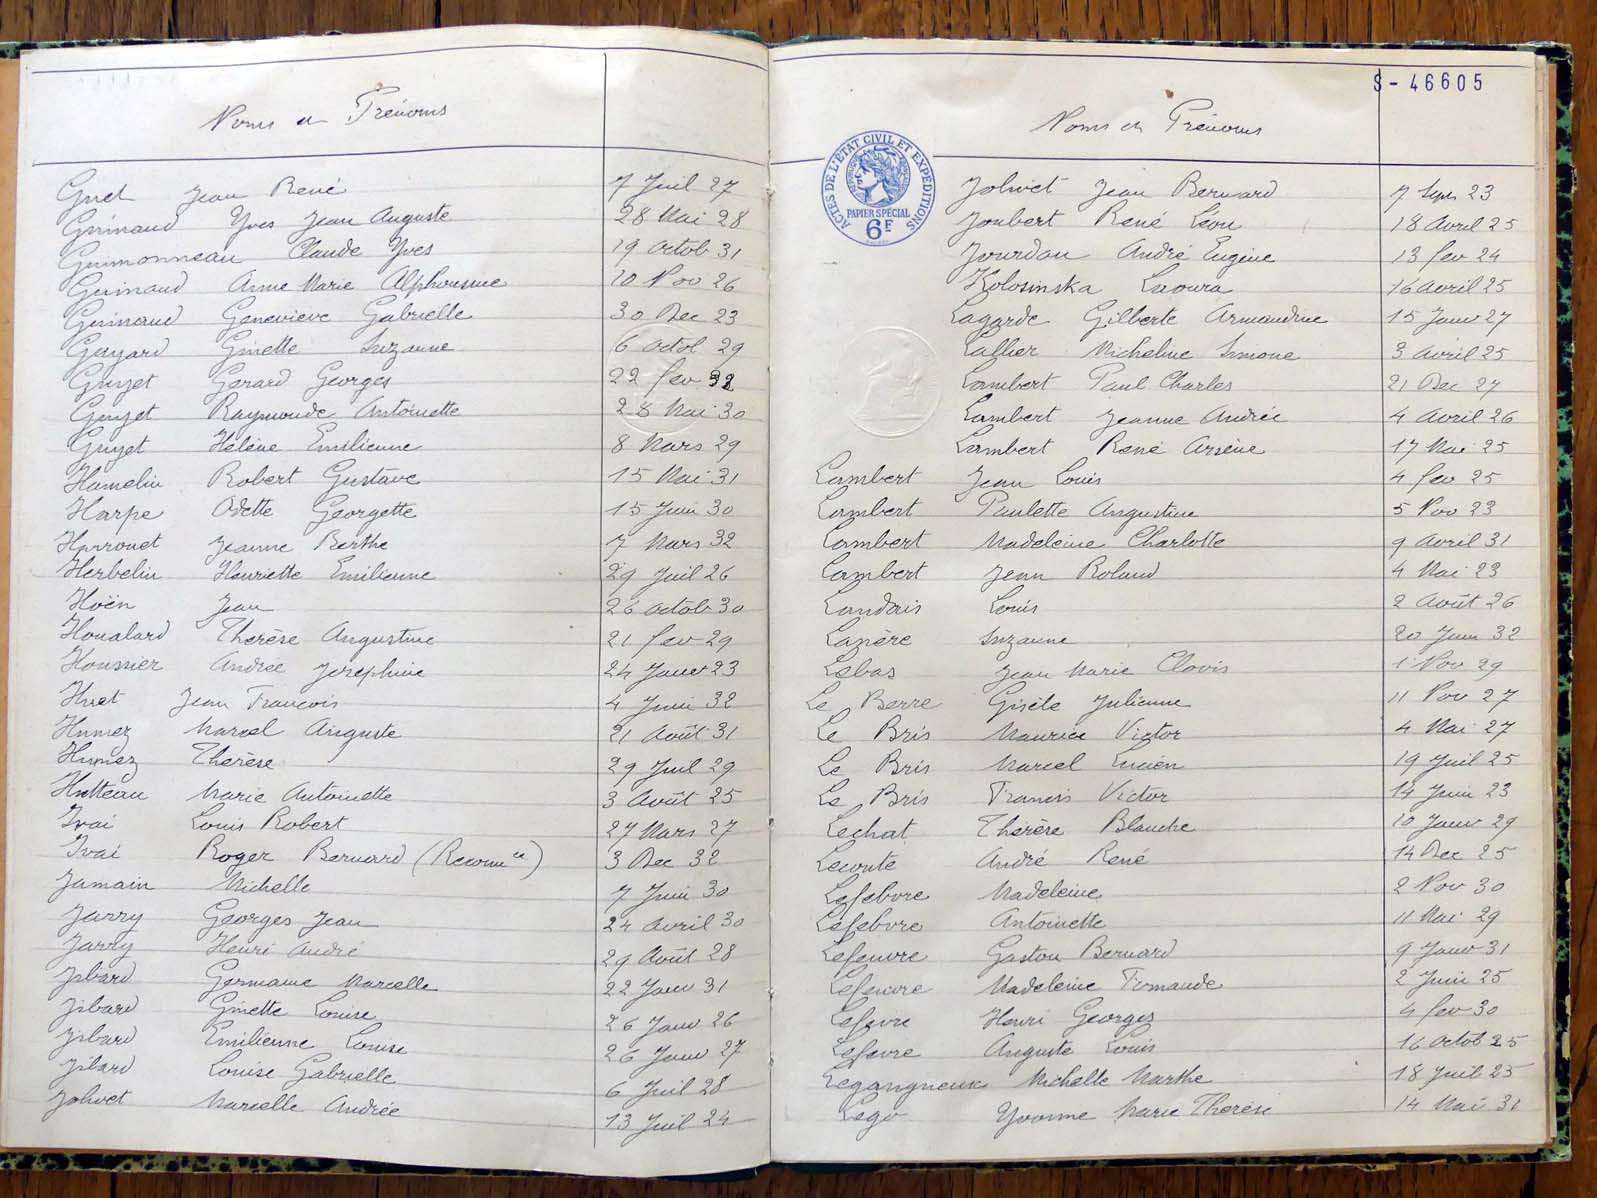 Noms et Prénoms
Guet Jean René 7 Juil 27
Guinaud Yves Jean Auguste 28 Mai 28
Guimonneau Claude Yves 19 octob 31
Guinaud Anne Marie Alphonsine 10 Nov 26
Guinaud Geneviève Gabrielle 30 Dec 23
Guyard Ginette Suzanne 6 octob 29
Guyet Gerard Georges 22 fev 32
Guyet Raymonde Antoinette 28 Mai 30
Guyet Hélène Emilienne 8 Mars 29
Hamelin Robert Gustave 15 Mai 31
Harpe Odette Georgette 15 Juin 30
Harrouet Jeanne Berthe 7 Mars 32
Herbelin Henriette Emilienne 29 Juil 26
Hoën Jean 26 octob 30
Houalard Thérèse Augustine 21 fev 29
Houssier Andrée Joséphine 24 Janv 23
Huet Jean François 4 Juin 32
Humez Marcel Auguste 21 Août 31
Humez Thérèse 29 Juil 29
Hutteau Marie Antoinette 3 Août 25
Ivai Louis Robert 27 Mars 27
Ivai Roger Bernard (Reconn ce) 3 Dec 32
Jamain Michelle 7 Juin 30
Jarry Georges Jean 24 avril 30
Jarry Henri André 29 Août 28
Jibard Germaine Marcelle 22 Janv 31
Jibard Ginette Louise 26 Janv 26
Jibard Emilienne Louise 26 Janv 27
Jibard Louise Gabrielle 6 Juil 28
Jolivet Marcelle Andrée 13 Juil 24
S-46605
Noms et Prénoms
ACTES DE L'ÉTAT CIVIL ET EXPÉDITIONS
PAPIER SPÉCIAL
6F
Jolivet Jean Bernard 7 Sep 23
Joubert René Léon 18 avril 25
Jourdan André Eugène 13 fev 24
Kolosinska Laoura 16 avril 25
Lagarde Gilberte Armandine 15 Janv 27
Lallier Micheline Simone 3 avril 25
Lambert Paul Charles 21 Dec 27
Lambert Jeanne Andrée 4 avril 26
Lambert René Arsène 17 Mai 25
Lambert Jean Louis 4 fev 25
Lambert Paulette Augustine 5 Nov 23
Lambert Madeleine Charlotte 9 avril 31
Lambert Jean Roland 4 Mai 23
Landais Louis 2 août 26
Lazère Suzanne 20 Juin 32
Lebas Jean Marie Clovis 1 Nov 29
Le Berre Gisèle Julienne 11 Nov 27
Le Bris Maurice Victor 4 Mai 27
Le Bris Marcel Lucien 19 Juil 25
Le Bris Francis Victor 14 Juin 23
Lechat Thérèse Blanche 10 Janv 29
Leconte André René 14 Dec 25
Lefebvre Madeleine 2 Nov 30
Lefebvre Antoinette 11 Mai 29
Lefeuvre Gaston Bernard 9 Janv 31
Lefeuvre Madeleine Fernande 2 Juin 25
Lefevre Henri Georges 4 fev 30
Lefevre Auguste Louis 16 octob 25
Legangneux Michelle Marthe 18 Juil 25
Lego Yvonne Marie Thérèse 14 Mai 31